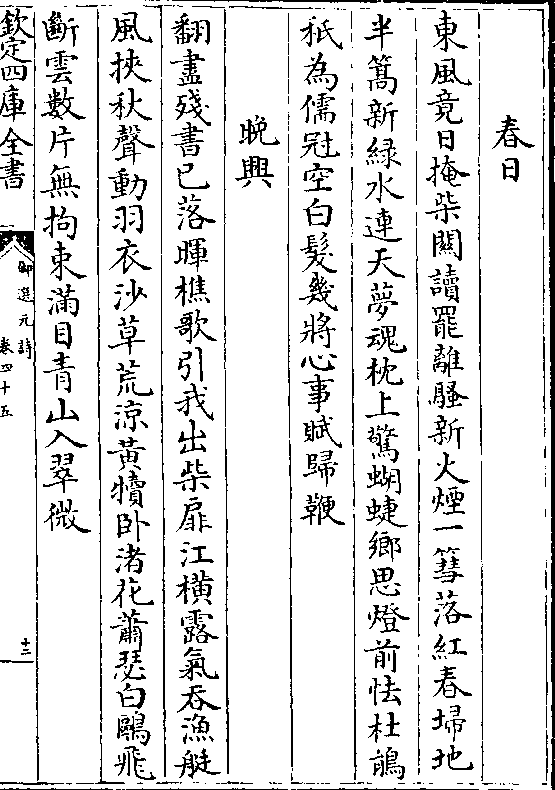 春日
東風竟日掩柴關讀罷離騷新火煙一篲落紅春埽地
半篙新緑水連天夢魂枕上驚蝴蜨鄉思燈前怯杜鵑
秖為儒冠空白髮幾將心事賦歸鞭
晚興
翻盡殘書已落暉樵歌引我出柴扉江橫露氣吞漁艇
風挾秋聲動羽衣沙草荒涼黃犢卧渚花蕭瑟白鷗飛
斷雲數片無拘束滿目青山入翠微
欽定四庫全書
御選元詩
卷四十五
十三